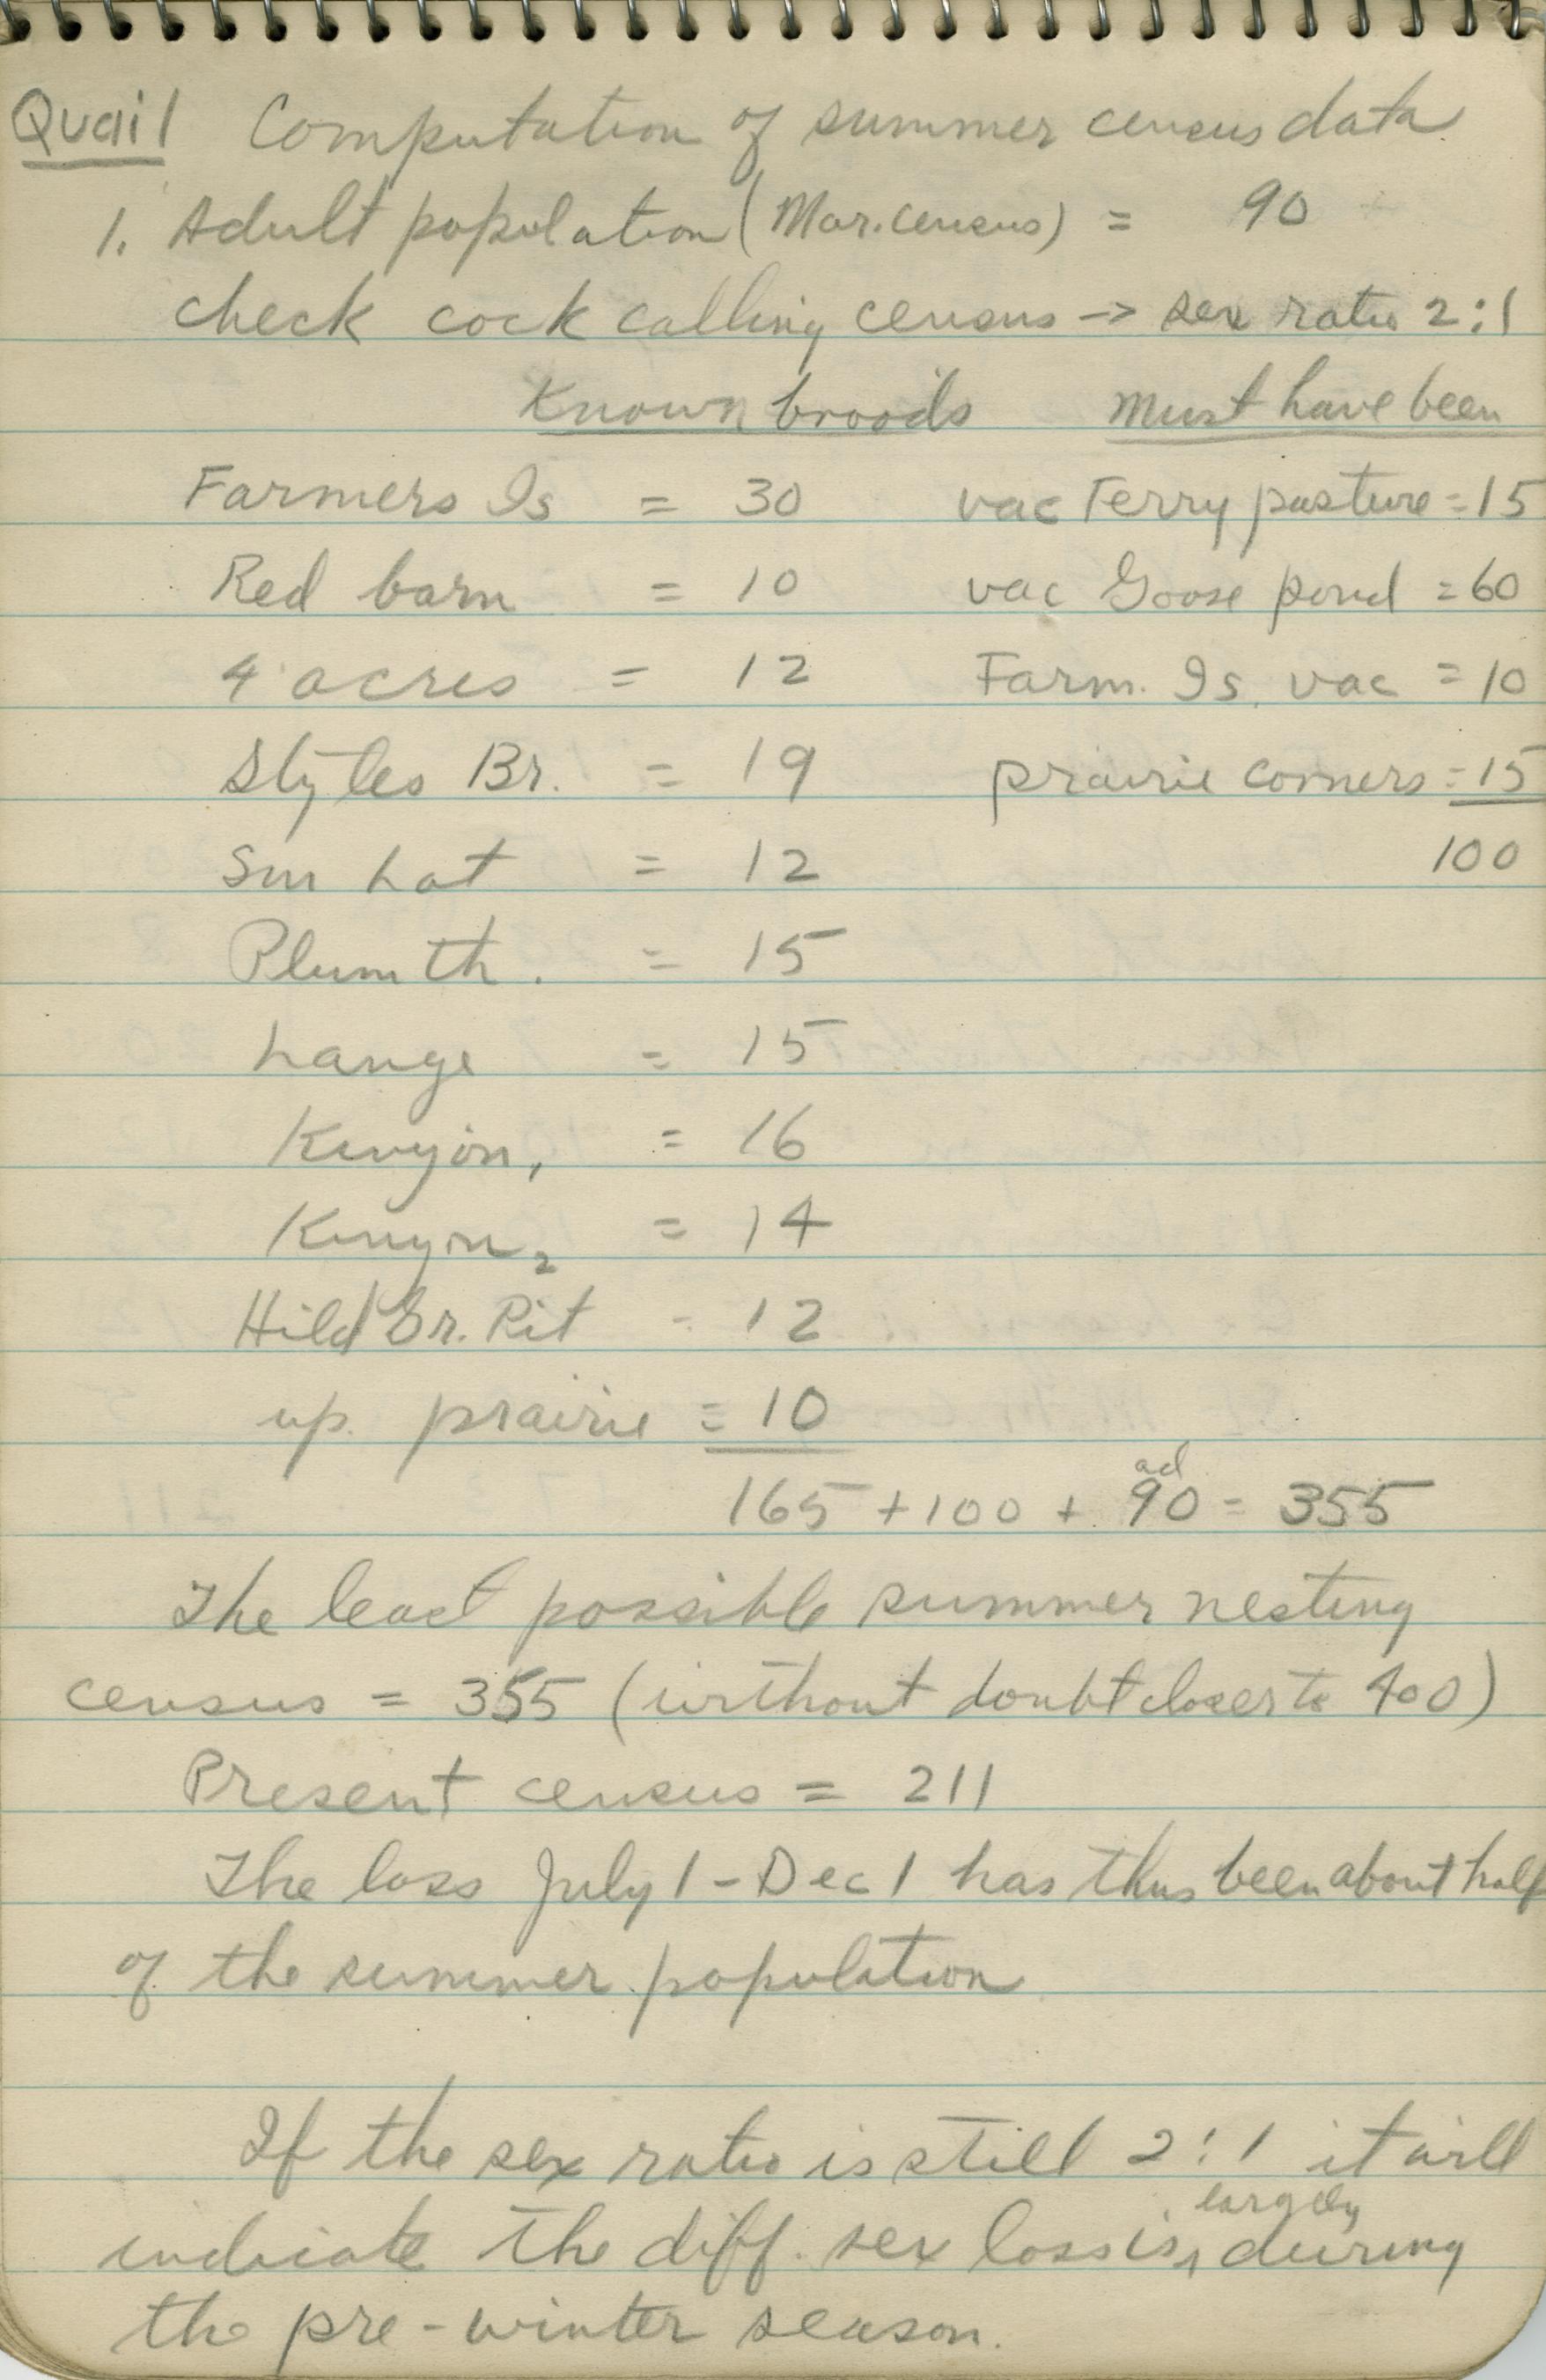 Quail Computation of summer census data
1. Adult population (Mar. census) = 90
check cock calling census -> sex ratio 2:1
Known broods Must have been
Farmers Is = 30 vac Ferry pasture = 15
Red barn = 10 vac Goose pond = 60
4 acres = 12 Farm. Is. vac = 10
Styles Br. = 19 prairie corners = 15
Sun hat = 12 100
Plum th. = 15
Lange = 15
Kenyon, = 16
Kenyon2 = 14
Hild Gr. Pit - 12
up. prairie = 10
ad
165 + 100 + 90 = 355
The least possible summer nesting
census = 355 (without doubt closer to 400)
Present census = 211
The loss July 1 - Dec 1 has thus been about half
of the summer population
If the sex ratio is still 2:1 it will
largely
indicate the diff. sex loss is, during
the pre-winter season.